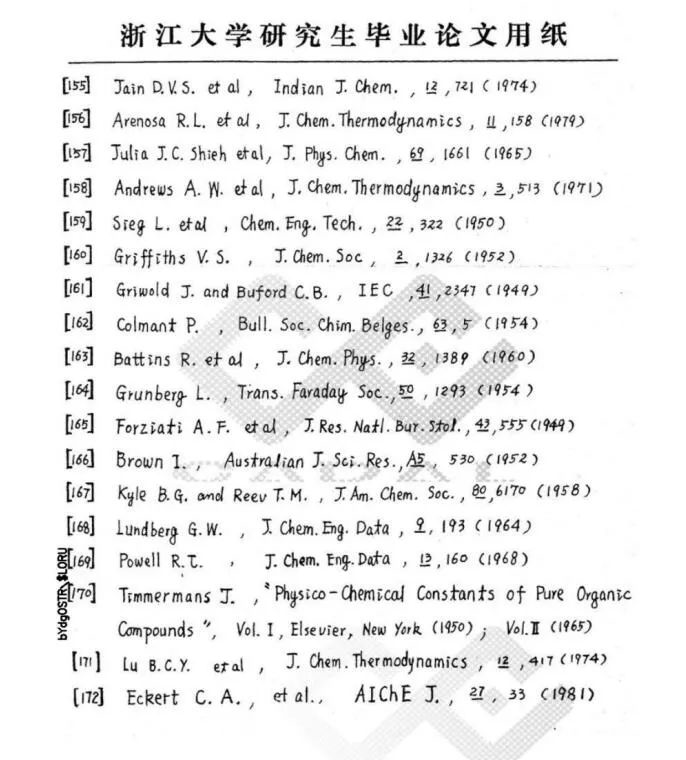 浙江大学研究生毕业论文用纸
[155] Jain D.V.S. et al, Indian J. Chem., 12, 721 (1974)
[156] Arenosa R.L. et al, J. Chem. Thermodynamics, 11, 158 (1979)
[157] Julia J.C. Shieh etal, J. Phys. Chem., 69, 1661 (1965)
[158] Andrews A. W. et al, J. Chem. Thermodynamics, 3, 513 (1971)
[159] Sieg L. etal, Chem. Eng. Tech., 22, 322 (1950)
[160] Griffiths V. S., J. Chem. Soc, 2, 1326 (1952)
[161] Griwold J. and Buford C.B., IEC, 41, 2347 (1949)
[162] Colmant P., Bull. Soc. Chim. Belges., 63, 5 (1954)
[163] Battins R. et al, J. Chem. Phys., 32, 1389 (1960)
[164] Grunberg L., Trans. Faraday Soc., 50, 1293 (1954)
[165] Forziati A.F. et al, J. Res. Natl. Bur. Stol., 43, 555 (1949)
[166] Brown I., Australian J. Sci. Res., A5, 530 (1952)
[167] Kyle B.G. and Reev T.M., J. Am. Chem. Soc., 80, 6170 (1958)
[168] Lundberg G.W., J. Chem. Eng. Data, 9, 193 (1964)
[169] Powell R.T., J. Chem. Eng. Data, 13, 160 (1968)
[170] Timmermans J., "Physico-Chemical Constants of Pure Organic
Compounds", Vol. I, Elsevier, New York (1950); Vol. II (1965)
[171] Lu B.C.Y. et al, J. Chem. Thermodynamics, 12, 417 (1974)
[172] Eckert C. A., et al., AIChE J., 27, 33 (1981)